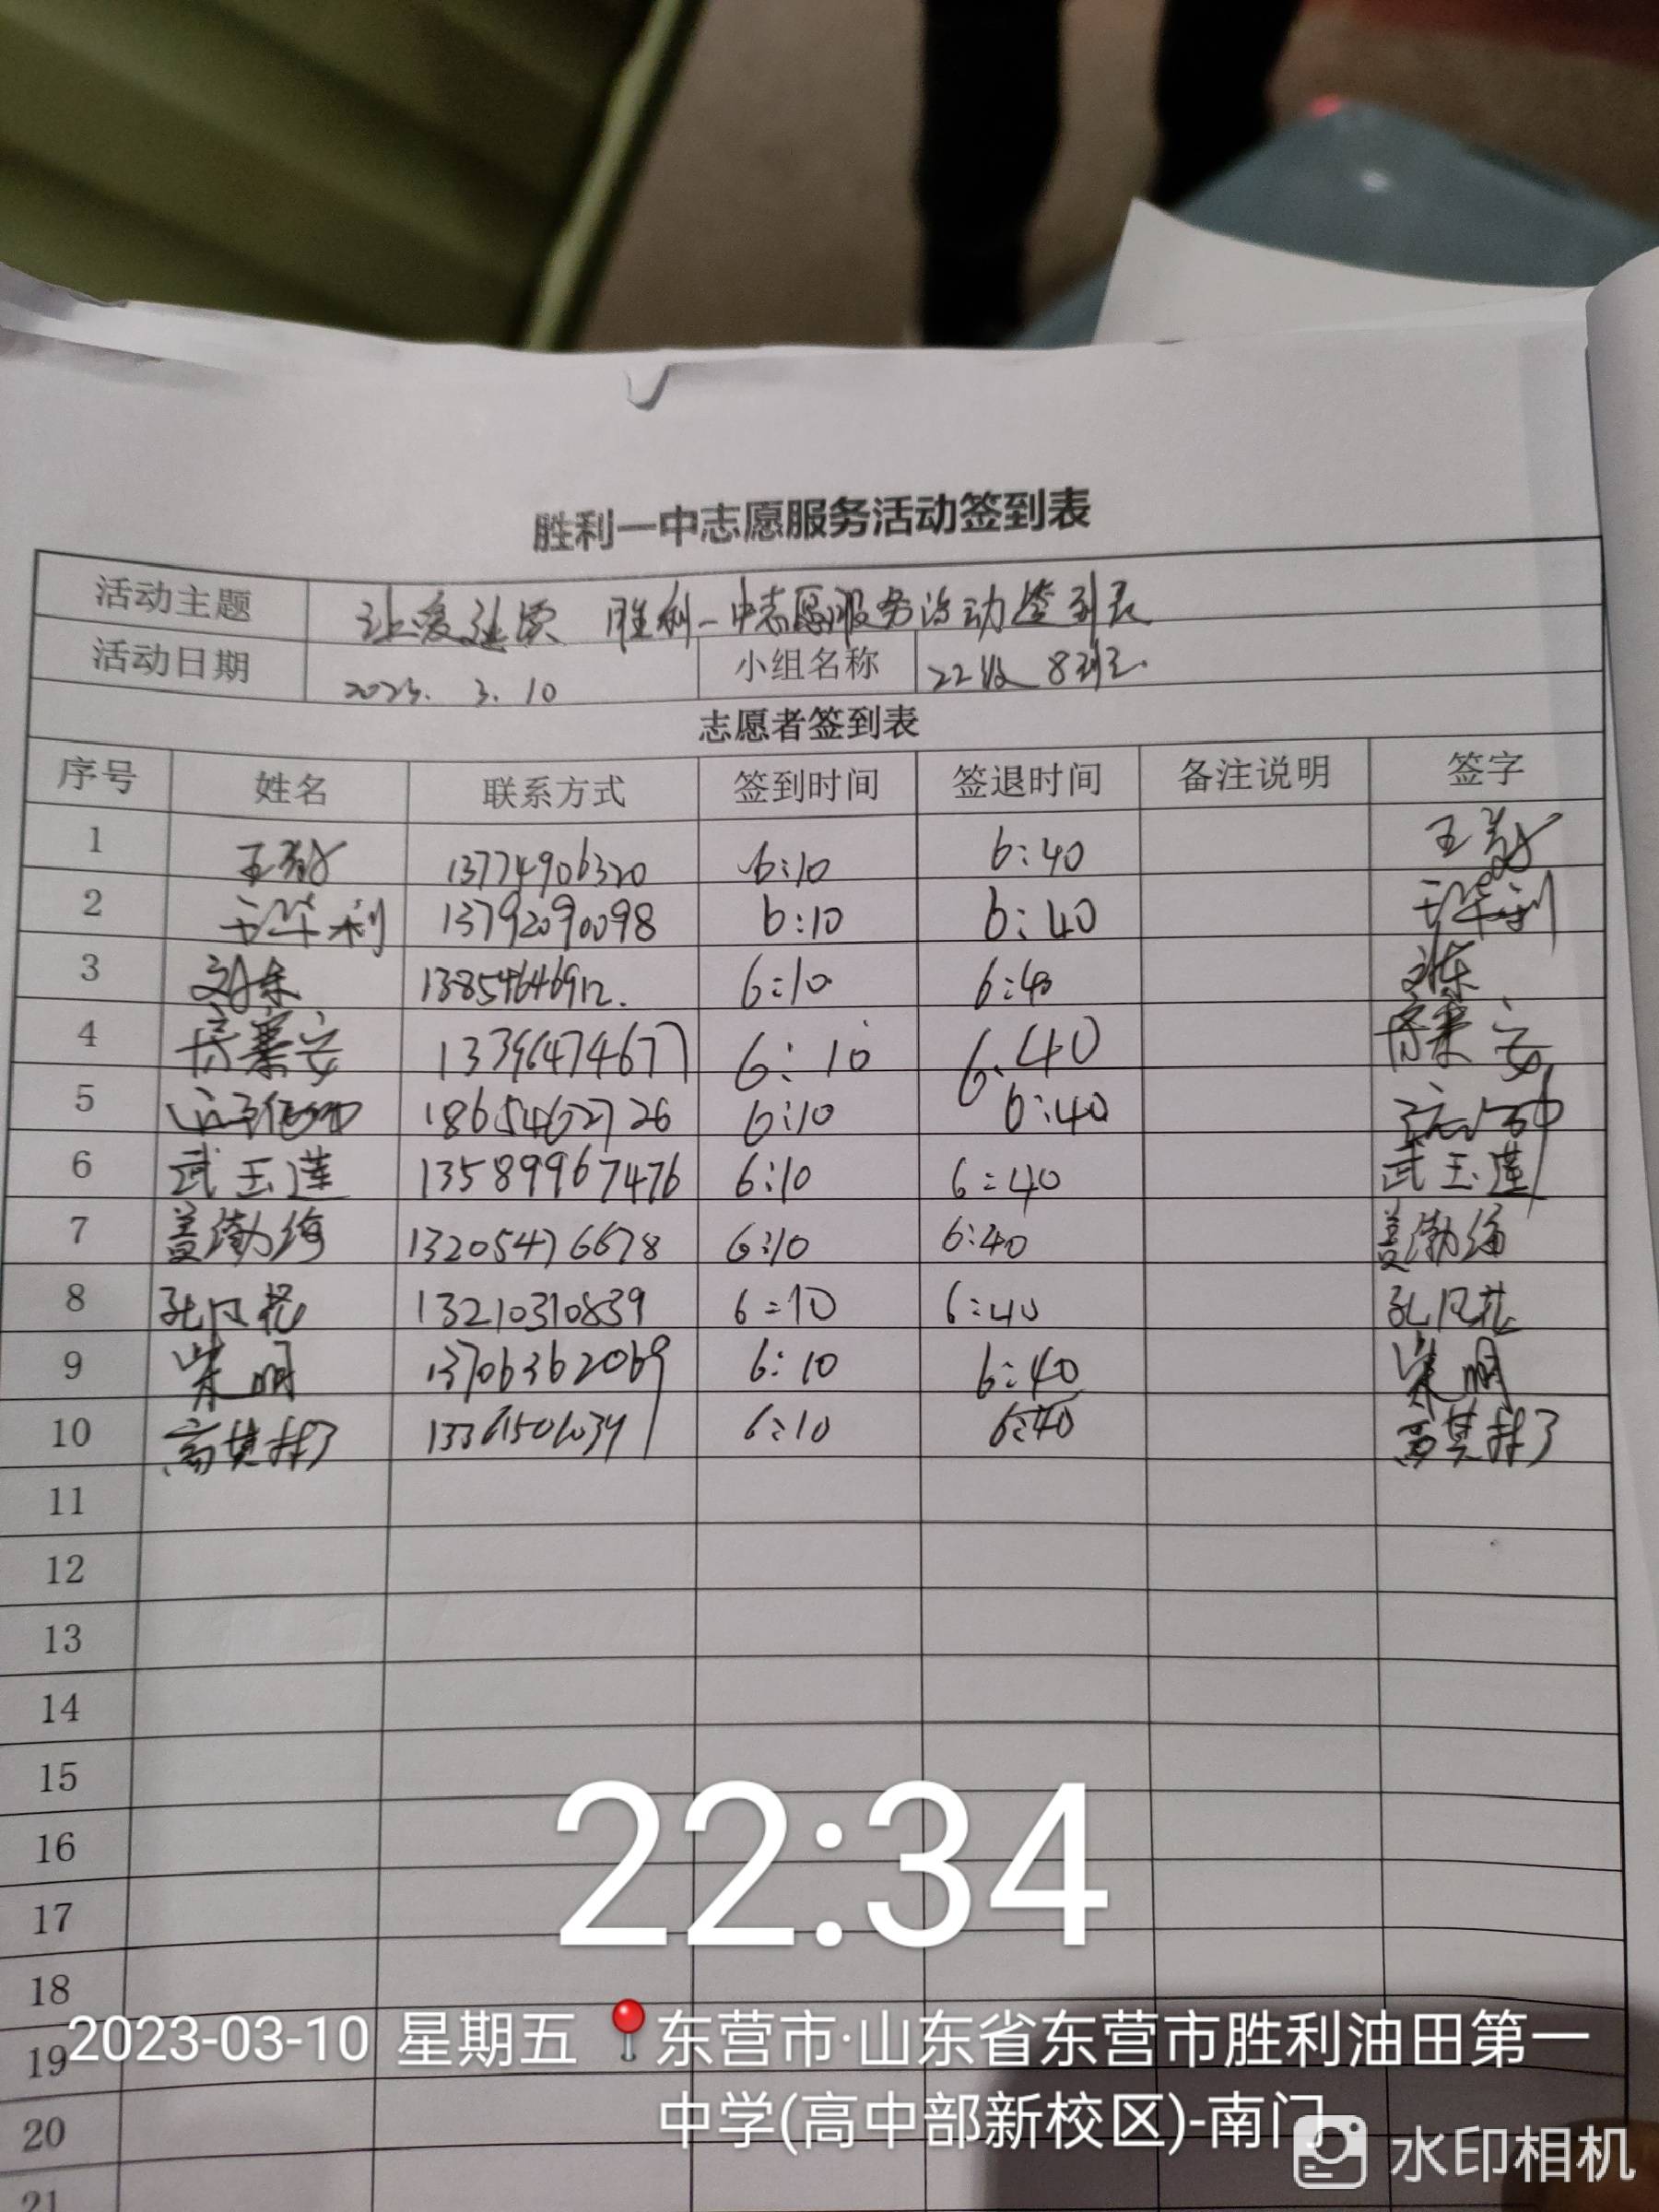 胜利一中志愿服务活动签到表
活动主题 让爱延续 胜利一中志愿服务活动签到表
活动日期 2023. 3. 10 小组名称 22级 8班.
志愿者签到表
序号 姓名 联系方式 签到时间 签退时间 备注说明 签字
1 13774906320 6:10 6:40
2 13792090098 6:10 6:40
3 13854646912. 6:10 6:40
4 13396474677 6:10 6:40
5 18654627726 6:10 6:40
6 武玉莲 13589967476 6:10 6:40 武玉莲
7 盖渤海 13205476678 6:10 6:40 盖渤海
8 孔凡花 13210310839 6:10 6:40 孔凡花
9 柴明 13706362069 6:10 6:40 柴明
10 6:10 6:40
11
12
13
14
15
16
17
18
19
20
21
22:34
2023-03-10 星期五 东营市·山东省东营市胜利油田第一
中学(高中部新校区)-南门
水印相机